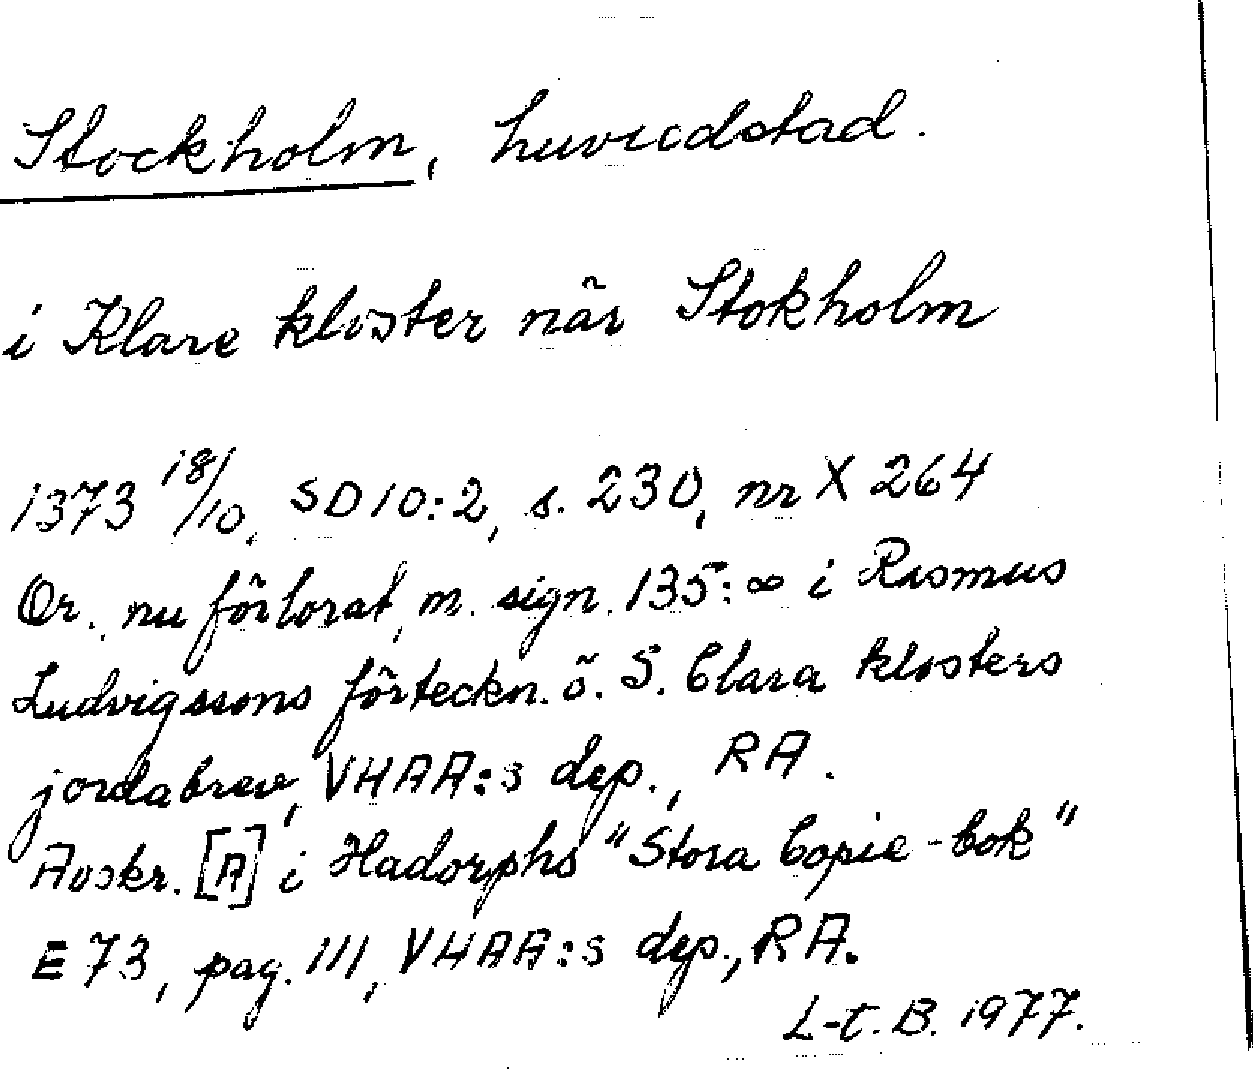 Stockholm, huvudstad.
i Klare kloster när Stokholm
1373 18/10, SD 10:2, s. 230, nr X 264
Or., nu förlorat, m. sign. 135: ∞ i Rasmus
Ludvigssons förteckn. ö. S. Clara klosters
jordabrev, VHAA:s dep., RA.
Avskr. [A] i Hadorphs "Stora Copie-bok"
E 73, pag. 111, VHAA:s dep., RA.
L-t. B. 1977.